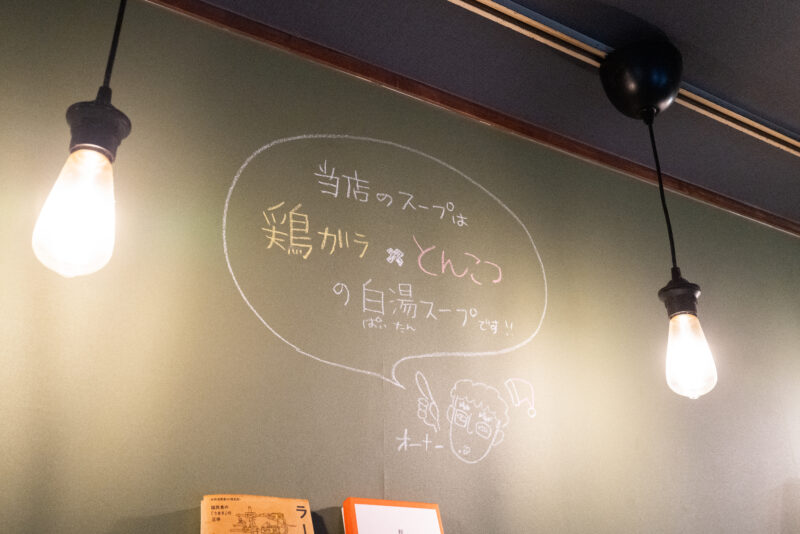 当店のスープは
鶏ガラ×とんこつ
の白湯スープです!!
ぱいたん
オーナー
ラー